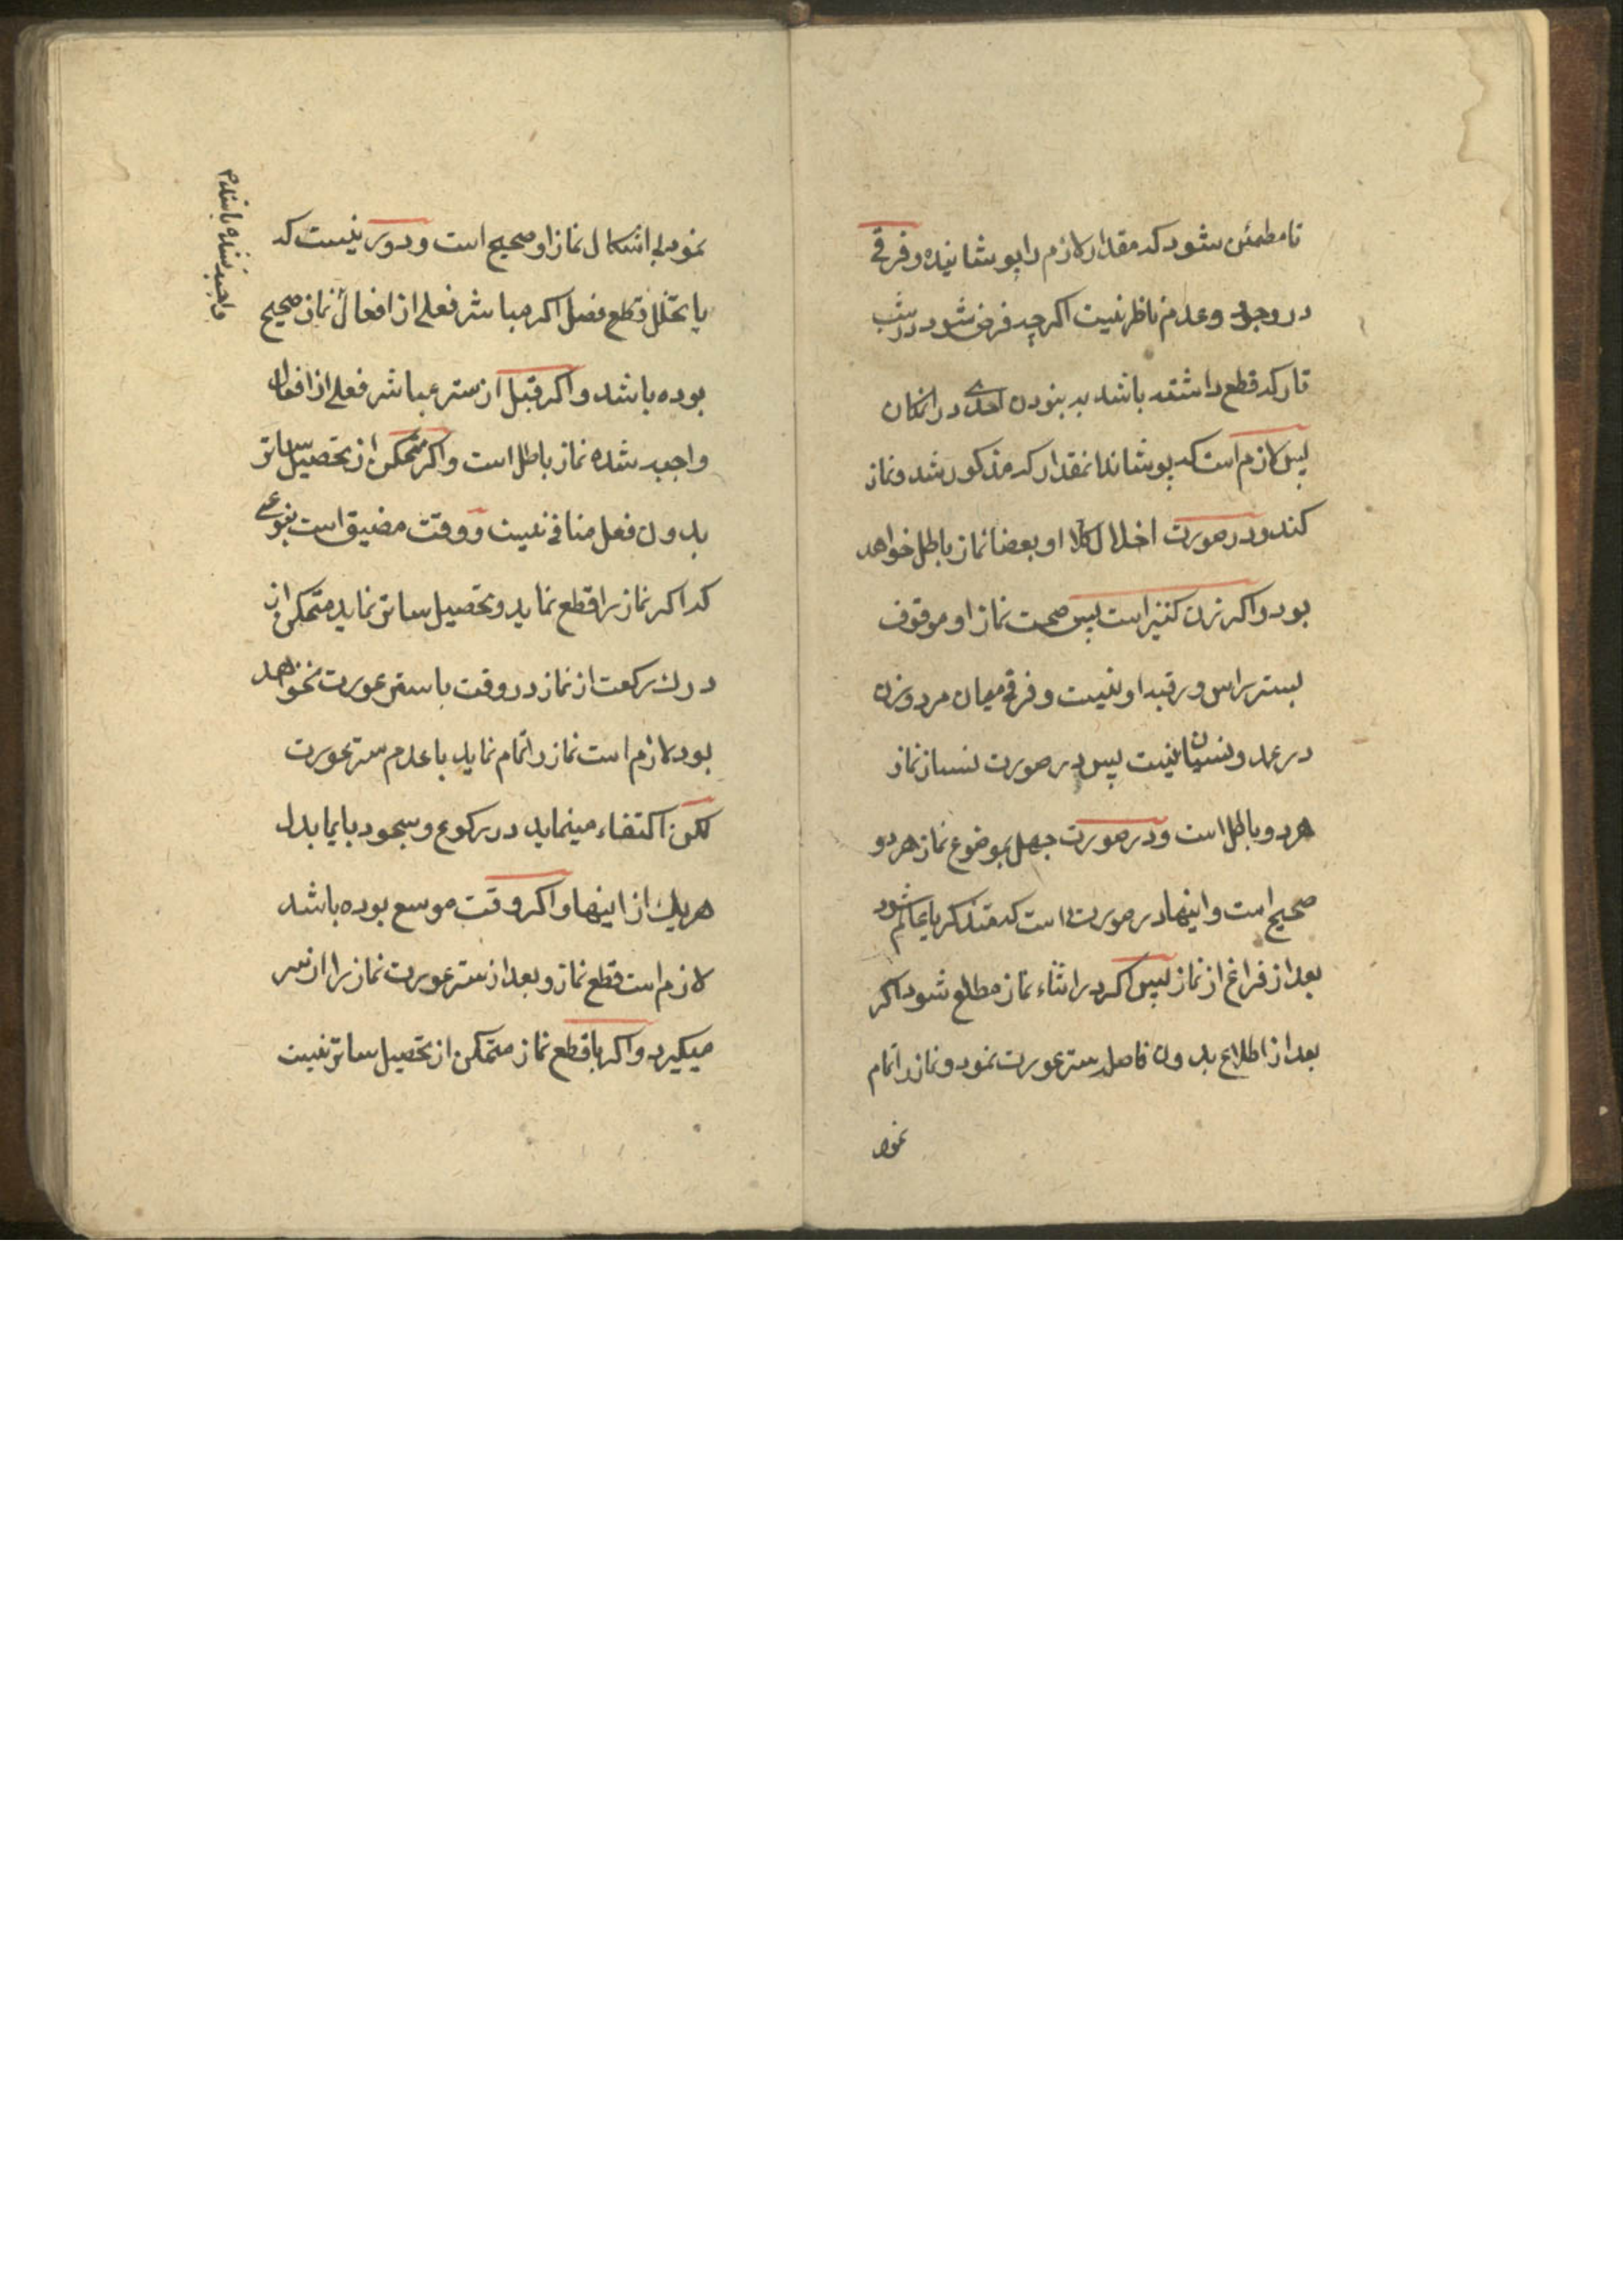 تا مطمئن شود که مقدار لازم را پوشانیده و فرقی
در وجود و عدم ناظر نیست اگرچه فرض شود در شب
تار که قطع داشته باشد به بنودن احدی در انمکان
پس لازم است که پوشاند انمقدار که مذکور شد و نماز
کند و در صورت اخلال کلا او بعضا نماز باطل خواهد
بود و اگر زن کنیز است پس صحت نماز او موقوف
بستر راس و رقبه او نیست و فرقی میان مرد و زن
در عمد و نسیان نیست پس در صورت نسیان نماز
هر دو باطل است و در صورت جهل بموضوع نماز هر دو
صحیح است و اینها در صورتی است که متذکر یا عالم شود
بعد از فراغ از نماز پس اگر در اثناء نماز مطلع شود اگر
بعد از اطلاع بدون فاصله ستر عورت نمود و نماز را تمام
نمود
نمود بی اشکال نماز او صحیح است و دور نیست که
با تخلل قطع فصل اگر مباشر فعلی از افعال نماز صحیح
واجب نشده باشد م
بوده باشد و اگر قبل از ستر مباشر فعلی از افعال
واجب شده نماز باطل است و اگر متمکن از تحصیل ساتر
بدون فعل منافی نیست و وقت مضیق است بنوعی
که اگر نماز را قطع نماید و تحصیل ساتر نماید متمکن از
درک رکعت از نماز در وقت با ستر عورت نخواهد
بود لازم است نماز را تمام نماید با عدم ستر عورت
لکن اکتفاء مینماید در رکوع و سجود بایما بدل
هر یک از اینها و اگر وقت موسع بوده باشد
لازم است قطع نماز و بعد از ستر عورت نماز را از سر
میگیرد و اگر با قطع نماز متمکن از تحصیل ساتر نیست